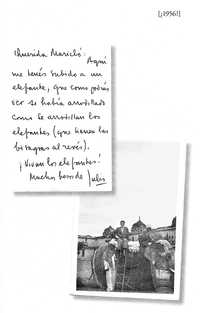 [¿1956?]
Querida Maricló: Aquí
me tenés subido a un
elefante, que como podrás
ver se había arrodillado
como se arrodillan los
elefantes (que tienen las
bisagras al revés).
¡Vivan los elefantes!
Muchos besos de Julio